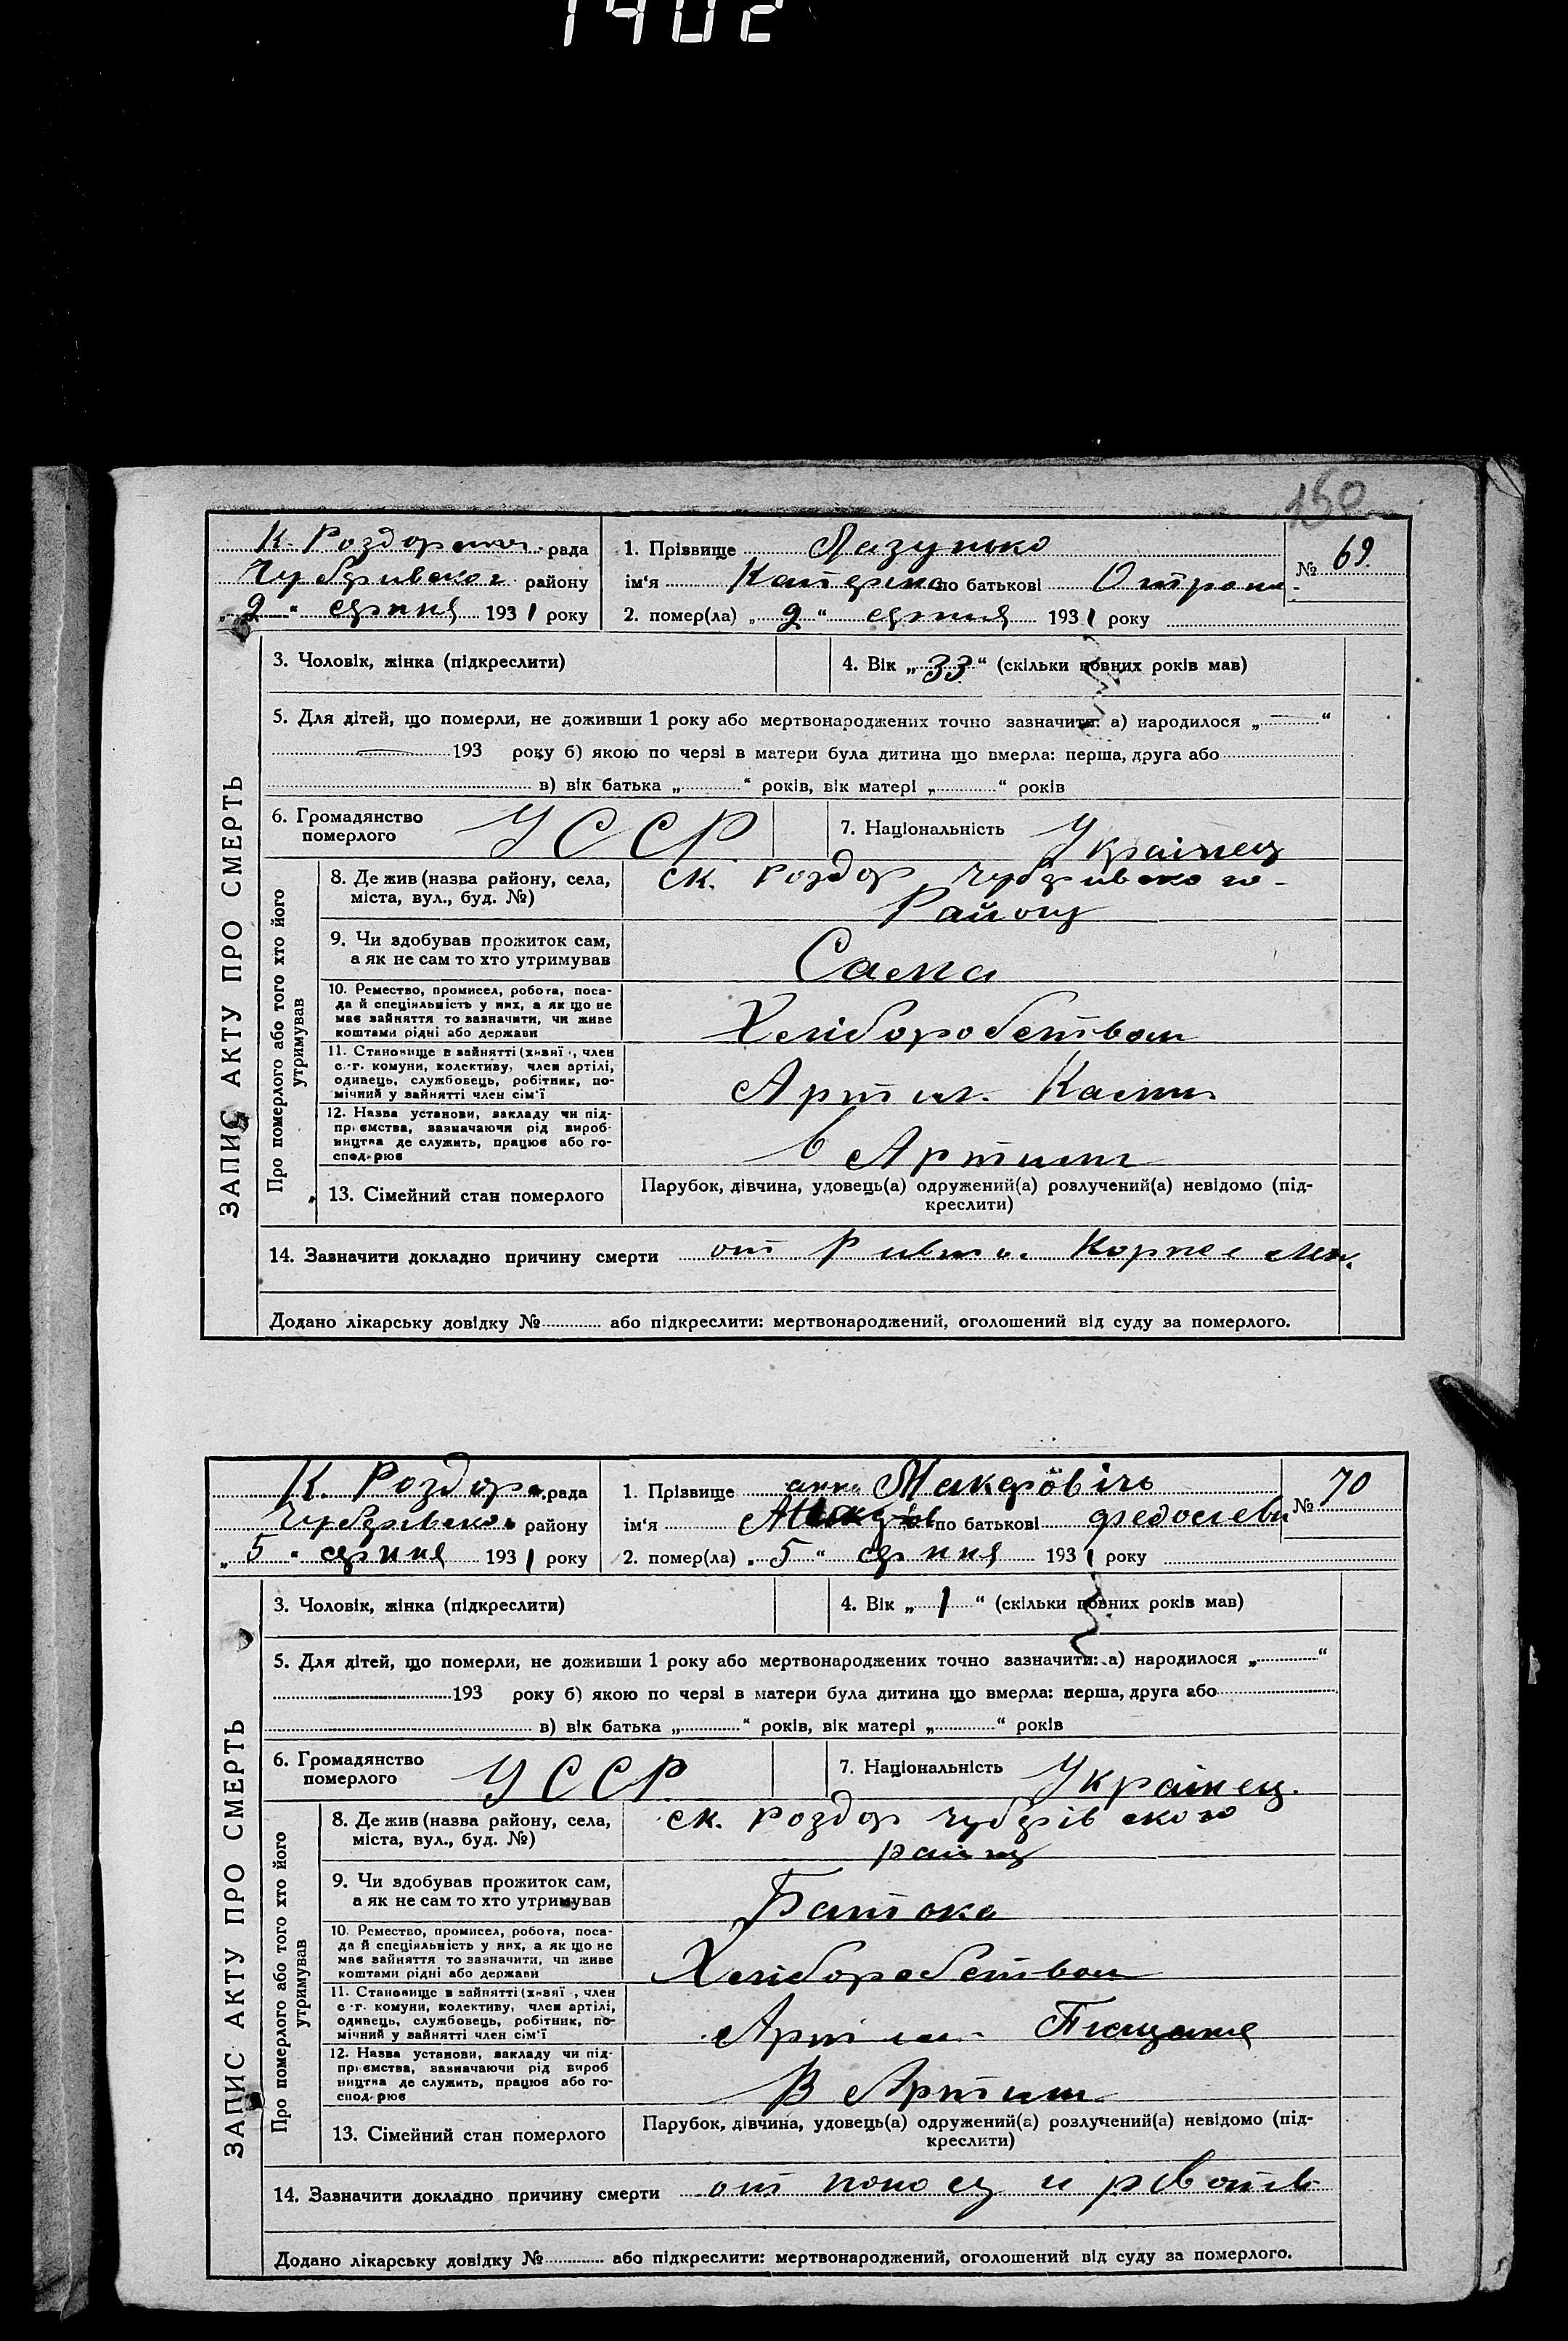 1402
150
К. Роздорська рада
Чубарівского району
„ 2 “ серпня 1931 року
1. Прізвище Лазунько
ім‘я Катерина по батькові
2. помер(ла) „ 2 “ серпня 1931 року
№ 69.
ЗАПИС АКТУ ПРО СМЕРТЬ
3. Чоловік, жінка (підкреслити)
4. Вік „ 33 “ (скільки повних років мав)
5. Для дітей, що померли, не доживши 1 року або мертвонароджених точно зазначити: а) народилося „ — “
193 року б) якою по черзі в матери була дитина що вмерла: перша, друга або
в) вік батька „ “ років, вік матері „ “ років
6. Громадянство
померлого
УССР
7. Національність Украінец
Про померлого або того хто його
утримував
8. Де жив (назва району, села,
міста, вул., буд. №)
ск. роздор чубарівского
Району
9. Чи здобував прожиток сам,
а як не сам то хто утримував
Сама
10. Ремество, промисел, робота, поса-
да й спеціяльність у них, а як що не
має зайняття то зазначити, чи живе
коштами рідні або держави
Хліборобством
11. Становище в зайнятті (хазяї, член
с.-г. комуни, колективу, член артілі,
одинець, службовець, робітник, по-
мічний у зайнятті член сім‘ї
Артил.
12. Назва установи, закладу чи під-
приємства, зазначаючи рід вироб-
ництва де служить, працює або го-
сподарює
в Артили
13. Сімейний стан померлого
Парубок, дівчина, удовець(а) одружений(а) розлучений(а) невідомо (під-
креслити)
14. Зазначити докладно причину смерти от
Додано лікарську довідку № або підкреслити: мертвонароджений, оголошений від суду за померлого.
К. Роздор. рада
Чубарівского району
„ 5 “ серпня 1931 року
1. Прізвище анна Макаровічь
ім‘я по батькові федосієвн
2. помер(ла) „ 5 “ серпня 1931 року
№ 70
ЗАПИС АКТУ ПРО СМЕРТЬ
3. Чоловік, жінка (підкреслити)
4. Вік „ 1 “ (скільки повних років мав)
5. Для дітей, що померли, не доживши 1 року або мертвонароджених точно зазначити: а) народилося „ “
193 року б) якою по черзі в матери була дитина що вмерла: перша, друга або
в) вік батька „ “ років, вік матері „ “ років
6. Громадянство
померлого
УССР
7. Національність Украінец.
Про померлого або того хто його
утримував
8. Де жив (назва району, села,
міста, вул., буд. №)
ск. роздор чубарівского
району
9. Чи здобував прожиток сам,
а як не сам то хто утримував
Батока
10. Ремество, промисел, робота, поса-
да й спеціяльність у них, а як що не
має зайняття то зазначити, чи живе
коштами рідні або держави
Хліборобством
11. Становище в зайнятті (хазяї, член
с.-г. комуни, колективу, член артілі,
одинець, службовець, робітник, по-
мічний у зайнятті член сім‘ї
Артил.
12. Назва установи, закладу чи під-
приємства, зазначаючи рід вироб
ництва де служить, працює або го-
сподарює
В Артили
13. Сімейний стан померлого
Парубок, дівчина, удовець(а) одружений(а) розлучений(а) невідомо (під-
креслити)
14. Зазначити докладно причину смерти от поносу и рвоти
Додано лікарську довідку № або підкреслити: мертвонароджений, оголошений від суду за померлого.